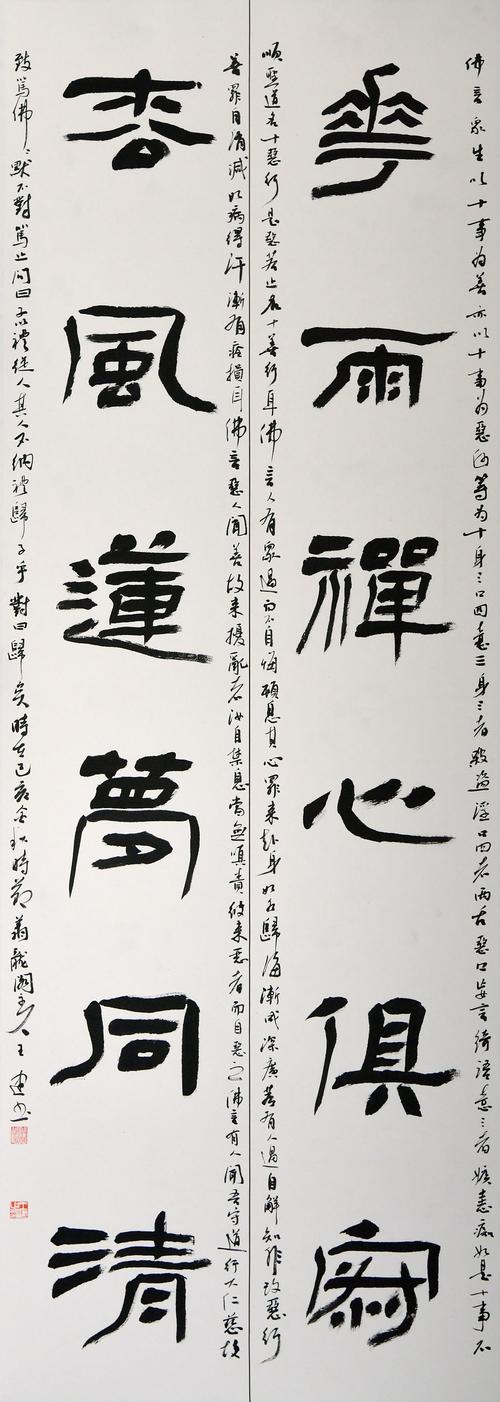 佛言眾生以十事為善亦以十事為惡何等為十身三口四意三身三者殺盜淫口四者兩舌惡口妄言綺語意三者嫉恚痴如是十事不
華雨禪心俱寂
順聖道名十惡行是惡若止名十善行耳佛言人有眾過而不自悔頓息其心罪來赴身如水歸海漸成深廣若有人過自解知非改惡行
善罪自消滅如病得汗漸有痊損耳佛言惡人聞善故來擾亂者汝自禁息當無嗔責彼來惡者而自惡之佛言有人聞吾守道行大仁慈故
香風蓮夢同清
致罵佛佛默不對罵止問曰子以禮從人其人不納禮歸子乎對曰歸矣時在己亥金秋時節龍閣主人王建書